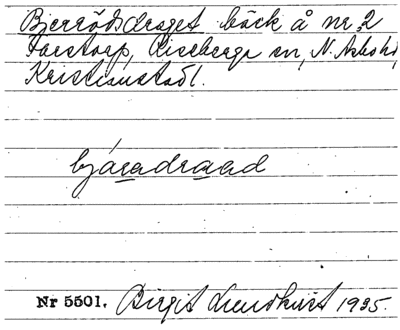 Bjerrödsdraget bäck å nr 2
Färstorp, Riseberga sn, N. Åsbo hd,
Kristianstad l.
bjäradraad
Nr 5501. Birgit Lundkvist 1935.